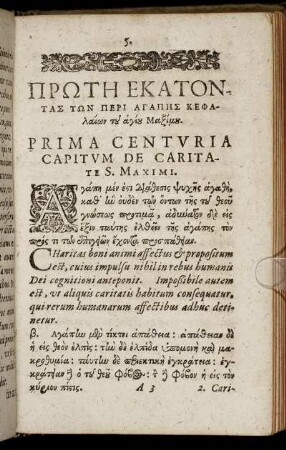 5.
ΠΡΩΤΗ ΕΚΑΤΟΝ-
ΤΑΣ ΤΩΝ ΠΕΡΙ ΑΓΑΠΗΣ ΚΕΦΑ-
λαίων τȣ ἁγίȣ Μαξίμȣ.
PRIMA CENTVRIA
CAPITVM DE CARITA-
TE S. MAXIMI.
Αγάπη μέν ἐστι διάθεσις ψυχῆς ἀγαθὴ,
καθ' ἣν οὐδὲν τῶν ὄντων τῆς τȣ θεοῦ
γνώσεως προτιμᾷ, ἀδύναλον δὲ εἰς
ἕξιν ταύτης ἐλθεῖν τῆς ἀγάπης τὸν
πρός τι τῶν ἐπιγείων ἔχοντα προσπάθειαν.
CHaritas boni animi affectus & propositum
est, cuius impulsu nihil in rebus humanis
Dei cognitioni anteponit. Impoßibile autem
est, vt aliquis caritatis habitum consequatur,
qui rerum humanarum affectibus adhuc deti-
netur.
β. Αγάπlω μὲν τίκτει ἀπάθεια: ἀπάθειαν δὲ
ἡ εἰς θεὸν ἐλπίς: τlὼ δὲ ἐλπίδα ὑπομονὴ καὶ μα-
κροθυμία: ταύτας δὲ περιεκτικὴ ἐγκράτεια: ἐγ-
κράτειαν ἢ ὁ τȣ θεȣ͂ φόβος: τ ἢ φόβον ἡ εἰς τὸν
κύριον πίστις.
A 3 2. Cari-